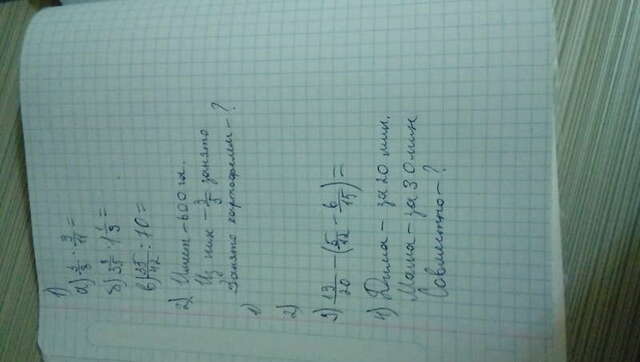 1)
а) 1/3 · 9/11 =
б) 3 3/5 · 1 1/9 =
в) 35/42 : 70 =
2) Имеет - 600 га.
Из них - 3/5 занято
Занято картофелем - ?
1)
2)
3) 13/20 - (5/12 - 6/15) =
4) Дима - за 20 мин.
Маша - за 30 мин
Совместно - ?